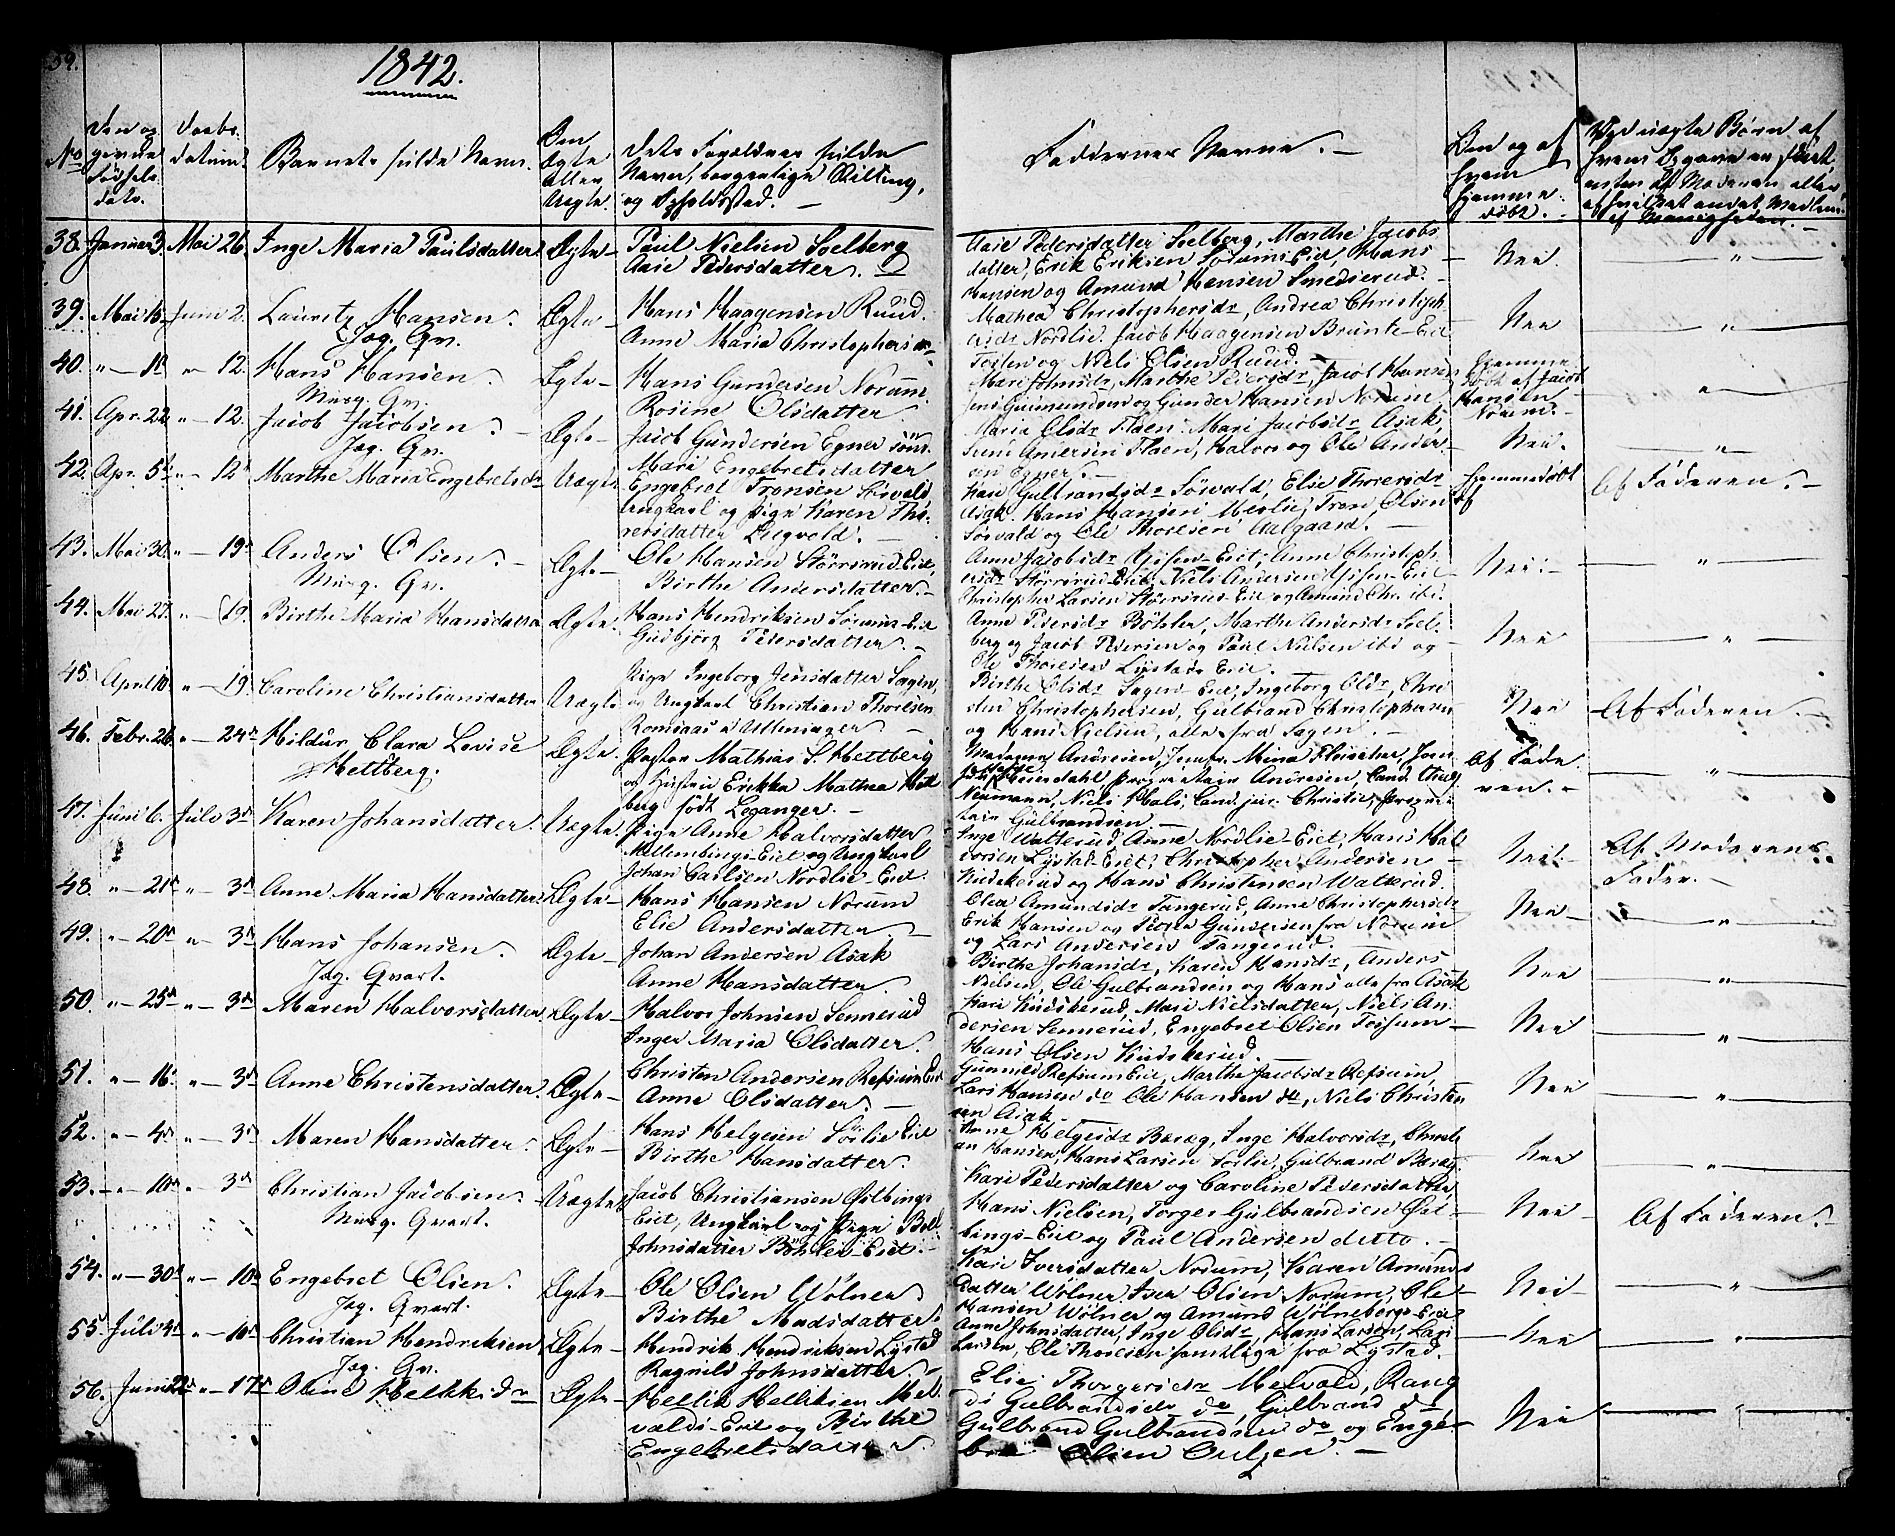 1842.
No
Daabs-
datum.
Barnets fulde Navn.
Om
Ægte
eller
Uægte.
Dets Forældres fulde
Navne, borgerlige Stilling,
og Opholdssted.
Faddernes Navne.
Om og af
hvem
hjemme-
døbt.
38. Januar 3. Mai 26. Inge Maria Paulsdatter Ægte Paul Nielsen Soelberg
Aase Pedersdatter.
Aase Pedersdatter Soelberg, Marthe Jacobs
datter, Erik Eriksen Sorums Eiet, Hans
Hansen og Amund Hansen Smedserud.
Nei
39. Mai 15. Juni 2. Lauritz Hansen. Ægte Hans Haagensen Ruud.
Jag. Qv.
Anne Maria Christophersdr
Mathea Christophersdr, Andrea Christoph-
ersdr Nordlie. Jacob Haagensen Brante-Eiet
Torsten og Niels Olsen Ruud.
Nei
40. " 11 " 12. Hans Hansen. Ægte Hans Gundersen Norum.
Musq. Qv.
Rosine Olsdatter
Mari Johnsdr, Marthe Pedersdr, Jacob Hansen
Jens Gulmundsen og Gunder Hansen Norum
Hjemme
døbt af Jacob
Hansen
Norum.
41. Apr. 22 " 12. Jacob Jacobsen. Ægte Jacob Gundersen Egner sönd.
Jag. Qv.
Mari Engebretsdatter
Maria Olsdr Flaen. Mari Jacobsdr Asak,
Svend Andersen Flaen, Halvor og Ole Ander-
sen Egner.
Nei.
42. Apr. 5 " 12 Marthe Maria Engebretsdr Uægte Engebret Tronsen Sörvald
Ungkarl og Pige Karen Tho-
resdatter Liegvold.
Kari Gulbrandsdr Sörvald, Elie Thoresdr
Asak. Hans Hansen Moslie, Tron Olsen
Sörvald og Ole Thoresen Aalgaard.
Hjemmedöbt
af
Af Faderen.
43. Mai 30. " 19 Anders Olsen. Ægte Ole Hansen Störrsrud-Eiet,
Musq. Qv.
Birthe Andersdatter.
Anne Jacobsdr Eiet, Anne Christoph-
ersdr Störrsrud-Eiet, Niels Andersen
Christopher Larsen Störrsrud-Eiet og Amund Chr. ibd.
Nei
44. Mai 27. " 19. Birthe Maria Hansdatter Ægte Hans Hendriksen Sorums-Eiet
Gudbjörg Pedersdatter.
Anne Pedersdr Böhler, Marthe Andersdr Soel-
berg og Jacob Pedersen og Paul Nielsen ibd og
Ole Thoresen Lystads Eiet.
Nei
45. April 10. " 19. Caroline Christiansdatter Uægte Pige Ingeborg Jensdatter Sagen,
og Ungkarl Christian Thoresen
Romsaas i Ullensager
Birthe Olsdr Sagen Eiet, Ingeborg Olsdr, Chri-
sten Christophersen, Gulbrand Christophersen
og Hans Nielsen, alle fra Sagen.
Nei
Af Faderen.
46. Febr. 26. " 24 Hildur Clara Lovise
Hettberg.
Ægte. Pastor Mathias S. Hettberg
og Hustru Erikka Mathea Hett
berg født Leganger.
Madame Andresen, Jomfr. Mina Fleischer, Jom
Heimdahl, Andresen, Cand. Theol
Neumann, Niels Hals, Cand. jur. Christie, Propri-
tair Gulbrandsen
Af Fade
ren.
47. Juni 6. Juli 3 Karen Johansdatter. Uægte. Pige Anne Halvorsdatter
Mellembings-Eiet og Ungkarl
Johan Carlsen Nordlie-Eiet
Inge Watterud, Anne Nordlie-Eiet, Hans Hal-
vorsen Lystad-Eiet, Christopher Andersen
Kudskerud og Hans Christensen Watterud.
Nei
Af Moderens
Fader.
48. " 21 " 3 Anne Maria Hansdatter. Ægte Hans Hansen Norum
Elie Andersdatter.
Olea Amundsdr Tangerud, Anne Christophersdr
Erik Hansen og Peder Gundersen fra Norum
og Lars Andersen Tangerud.
Nei
49. " 20 " 3 Hans Johansen. Ægte Johan Andersen Asak
Jag. Qvart.
Anne Hansdatter.
Birthe Johansdr, Karen Hansdr, Anders
Nielsen, Ole Gulbrandsen og Hans alle fra Asak
Nei
50. " 25 " 3 Maren Halvorsdatter. Ægte Halvor Johnsen Sennerud
Inger Maria Olsdatter.
Kari Kudskerud, Mari Nielsdatter, Niels An-
dersen Sennerud, Engebret Olsen Fossum
Hans Olsen Kudskerud.
Nei
51. " 16. " 3 Anne Christensdatter. Ægte Christen Andersen Refsum Eiet
Anne Olsdatter.
Gunnild Refsum Eiet, Marthe Jacobsdr Refsum,
Lars Hansen do Ole Hansen do, Niels Christen
sen Asak.
Nei
52. " 4 " 3 Maren Hansdatter. Ægte Hans Helgesen Sörlie Eiet
Birthe Hansdatter.
Anne Helgesdr Baræg, Inge Halvorsdr, Christi-
an Hansen, Hans Larsen Sorlie, Gulbrand Baræg.
Nei
53. " 10 " 3 Christian Jacobsen. Uægte Jacob Christiansen Ørbings
Musq. Qvart.
Eiet, Ungkarl og Pige Berthe
Johnsdatter Böhler Eiet.
Kari Pedersdatter og Caroline Pedersdatter,
Hans Nielsen, Torger Gulbrandsen Ør-
bings-Eiet og Paul Andersen detto.
Nei
Af Faderen.
54. " 30 " 10 Engebret Olsen. Ægte Ole Olsen Wölner
Jag. Qvart.
Birthe Madsdatter.
Kari Iversdatter Norum, Karen Amunds
datter Wölner Iver Olsen Norum, Ole
Hansen Wölner og Amund Wölneberg-Eiet
Nei
55. Juli 4 " 10 Christian Hendriksen Ægte Hendrik Hendriksen Lystad
Jag. Qv.
Ragnild Johnsdatter.
Anne Johnsdatter, Inge Olsdr, Hans Larsen, Lars
Larsen, Ole Thoresen samtlige fra Lystad.
Nei
56. Juni 22 " 17 Oline Helliksdr Ægte Hellik Helliksen Mel-
valds-Eiet og Birthe
Engebretsdatter
Elie Thorgersdr Melvold, Rang
di Gulbrandsdr do, Gulbrand do,
Gulbrand Gulbrandsen do og Enge-
bret Olsen Oulsen.
Nei